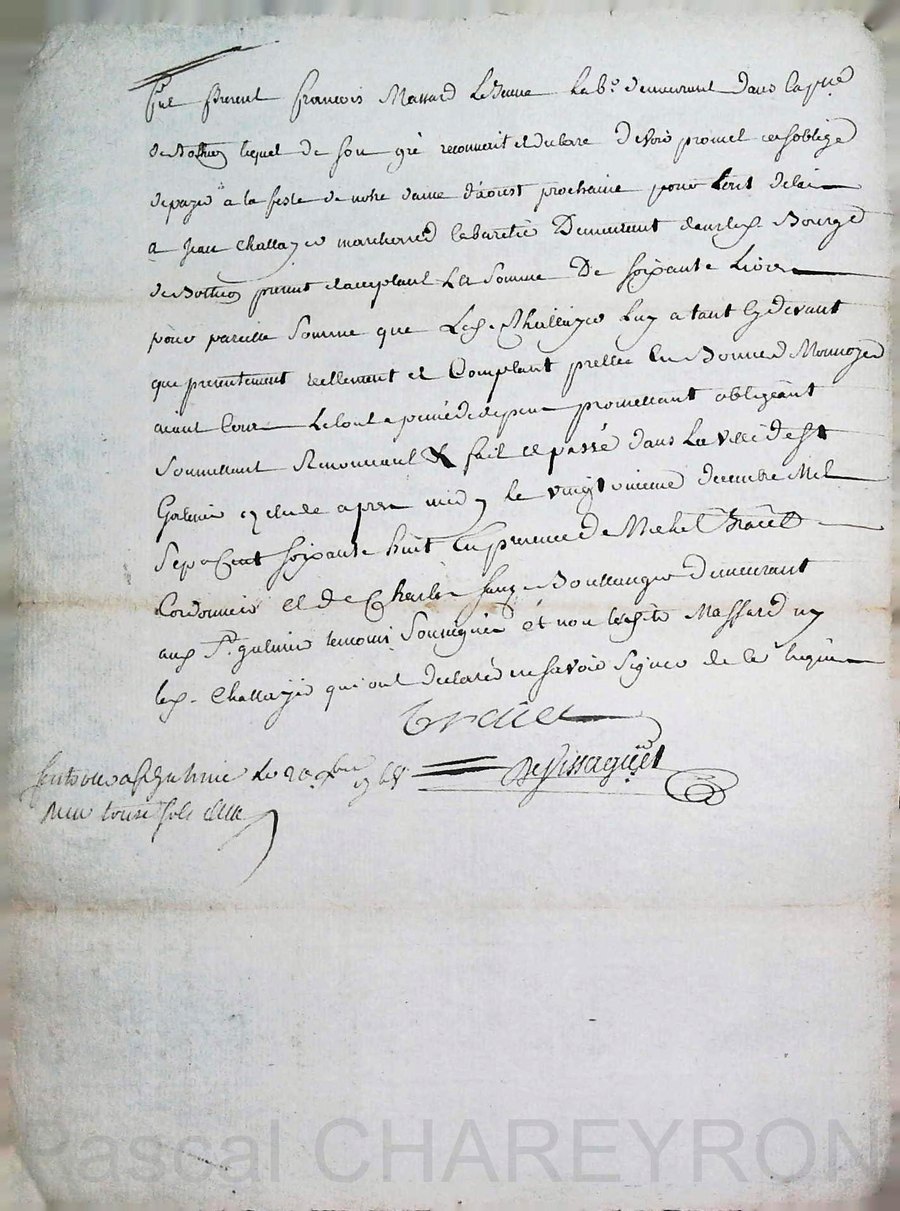 fut present françois Massard Le Jeune Lab.r demeurant dans la p.sse
de Botheon lequel de son gré reconnoit et declare devoir promet et s'oblige
de payer a la feste de notre dame d'aoust prochaine pour tout delai
a Jean Challayer marchand cabaretié Demeurant audit Bourg
de Botheon present et acceptant La Somme De soixante Livres
pour pareille Somme que Led. Challayer Luy a tant cy devant
que presentement reellement et Comptant prettée en Bonnes Monnoyes
aiant Cour Le tout a peine de depens promettant obligeant
Soumettant Renonceant & fait et passé dans La ville de St
Galmier etude apres midy le vingt onzieme decembre Mil
Sept Cent soixante huit En presence de Michel
Cordonnier et de Charle Boullanger Demeurant
aud St. galmier temoins Soussignés et non ledit Massard ny
led. Challayer qui ont declaré ne savoir signer de ce requis
DeVissaguet
a St Galmie Le 20 xbre 1768
treize sols
Pascal CHAREYRON